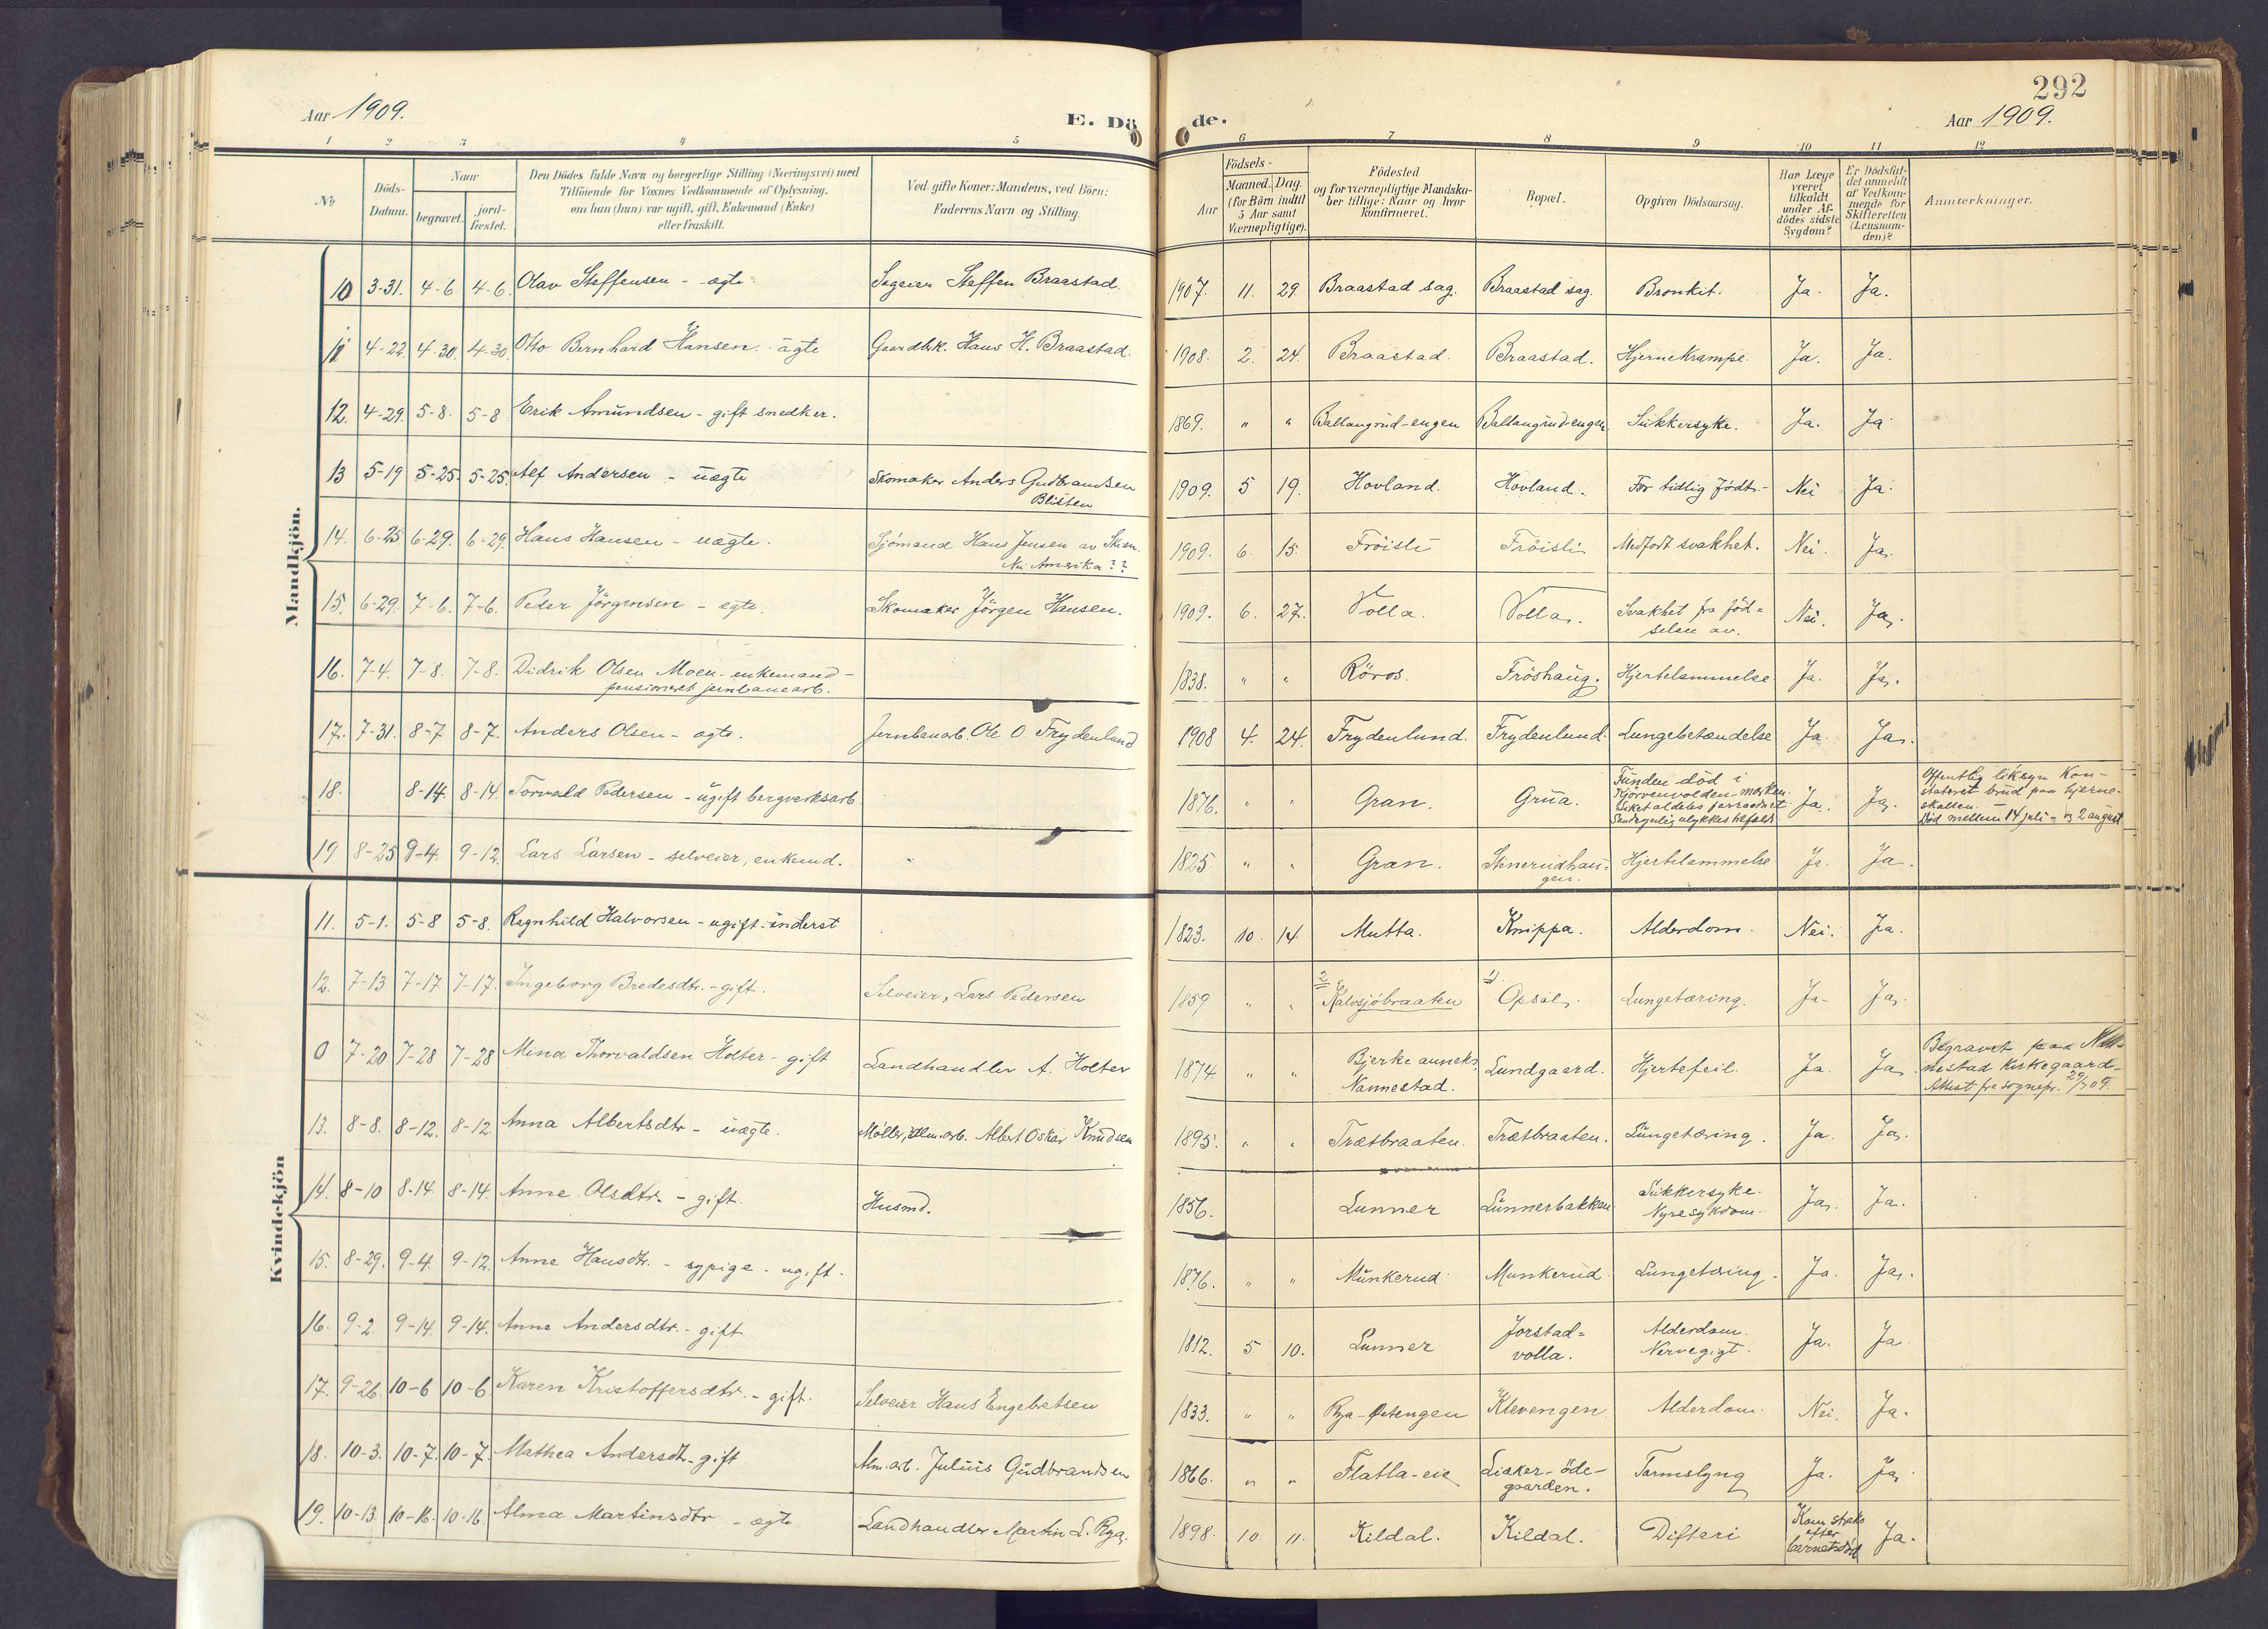 292
Aar 1909.
E. Dö de.
Aar 1909.
1 2 3 4 5 6 7 8 9 10 11 12
No
Döds-
Datum.
Naar
begravet.
jord-
fæstet.
Den Dödes fulde Navn og borgerlige Stilling (Næringsvei) med
Tilföiende for Voxnes Vedkommende af Oplysning,
om han (hun) var ugift, gift, Enkemand (Enke)
eller fraskilt.
Ved gifte Koner: Mandens, ved Börn:
Faderens Navn og Stilling.
Födsels-
Aar
Maaned. Dag.
(for Börn indtil
5 Aar samt
Værnepligtige).
Födested
og for værnepligtige Mandska-
ber tillige: Naar og hvor
konfirmeret.
Bopæl.
Opgiven Dödsaarsag.
Har Læge
været
tilkaldt
under Af-
dödes sidste
Sygdom?
Er Dödsfal-
det anmeldt
af Vedkom-
mende for
Skifteretten
(Lensman-
den)?
Anmærkninger.
Mandkjön.
10 3-31. 4-6 4-6 Olav Steffensen - ægte. Sageier Steffen Braastad. 1907. 11. 29. Braastad sag. Braastad sag. Bronkit. Ja. Ja.
11 4-22. 4-30. 4-30. Otto Bernhard Hansen - ægte Gaardbr. Hans H. Braastad. 1908. 2. 24. Braastad. Braastad. Hjernekrampe. Ja. Ja.
12. 4-29. 5-8. 5-8 Erik Amundsen - gift snedker. 1869. " " Ballangrud-engen Ballangrud-engen Sukkersyke. Ja. Ja
13 5-19 5-25. 5-25. Alf Andersen - uægte Skomaker Anders Gudbrandsen 1909. 5 19. Hovland. Hovland. For tidlig födt. - Nei Ja.
Blisten
14. 6-25 6-29. 6-29. Hans Hansen - uægte. Sjömand Hans Jensen av Skien. 1909. 6. 15. Fröisli Fröisli Medfödt svakhet. Nei. Ja.
Nu Amerika??
15. 6-29. 7-6. 7-6. Peder Jörgensen - egte. Skomaker Jörgen Hansen. 1909. 6. 27. Volla. Volla. Svakhet fra föd= Nei. Ja.
selen av.
16. 7-4. 7-8. 7-8. Didrik Olsen Moen - enkemand - 1838. " " Röros. Fröshaug. Hjertelammelse Ja. Ja.
pensioneret jernbanearb.
17. 7-31. 8-7 8-7. Anders Olsen - ægte. Jernbanearb. Ole O. Frydenlund 1908 4. 24. Frydenlund. Frydenlund. Lungebetændelse Ja. Ja.
18. 8-14. 8-14. Torvald Pedersen - ugift bergverksarb. 1876. " " Gran. Grua. Funden död i Ja. Ja.
Kjörvenvolden-marken.
Liket aldeles forraadnet.
Sandsynlig ulykkestilfælde
Offentlig liksyn kon-
stateret brud paa hjerne-
skallen. -
Död mellem 14 juli - og 2 august
19 8-25 9-4. 9-12. Lars Larsen - selveier, enkemd. 1825 " " Gran. Stenerudhau= Hjertelammelse Ja. Ja.
gen.
Kvindekjön
11. 5-1. 5-8 5-8. Ragnhild Halvorsen - ugift inderst 1823. 10. 14. Mutta. Knippa. Alderdom. Nei. Ja.
12. 7-13 7-17 7-17. Ingeborg Bredesdtr. - gift. Selveier, Lars Pedersen 1859 " " 2 Kalvsjöbraaten 1) Opsal. Lungetæring. Ja- Ja.
0 7-20 7-28 7-28 Mina Thorvaldsen Holter - gift Landhandler A. Holter 1874. " " Bjerke anneks, Lundgaard. Hjertefeil. Ja. Ja.
Nannestad.
Begravet paa Nan-
nestad kirkegaard -
Attest fra sognepr. 29/7 09.
13. 8-8. 8-12. 8-12. Anna Albertsdtr - uægte. Møller, alm. arb. Albert Oskar Knudsen 1895. " " Trætbraaten. Trætbraaten. Lungetæring. Ja. Ja.
14. 8-10 8-14. 8-14. Anne Olsdtr. - gift Husmd. 1856. Lunner Lunnerbakken Sukkersyke. Ja. Ja.
Nyresykdom.
15. 8-29. 9-4. 9-12. Anne Hansdtr. - sypige. ugift. 1876. " " Munkerud Munkerud. Lungetæring. Ja. Ja.
16. 9-2. 9-14. 9-14. Anne Andersdtr. - gift 1812. 5 10. Lunner Jorstad= Alderdom. Ja. Ja
volla. Nervegigt.
17. 9-26. 10-6 10-6. Karen Kristoffersdtr. - gift. Selveier Hans Engebretsen 1833. " " Rya-Østengen Klevengen Alderdom. Nei. Ja.
18. 10-3. 10-7. 10-7. Mathea Andersdtr. - gift Alm. arb. Julius Gudbrandsen 1866. " " Flatla-eie Lieker-öde- Tarmslyng Ja. Ja.
gaarden.
19. 10-13. 10-16. 10-16. Alma Martinsdtr - ægte Landhandler Martin L. Rya. 1898. 10 11. Kildal. Kildal. Difteri Kom straks Ja.
efter
barnets död